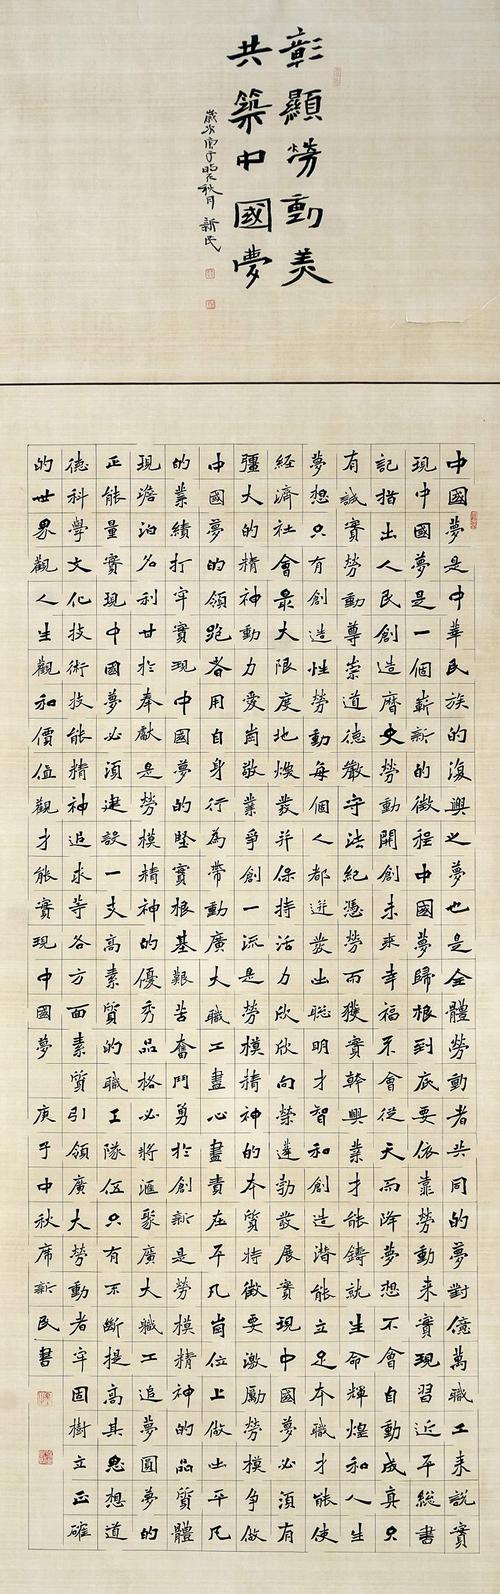 彰顯勞動美
共築中國夢
歲次庚子秋月 新民
中國夢是中華民族的復興之夢也是全體勞動者共同的夢對億萬職工來說實
現中國夢是一個嶄新的徵程中國夢歸根到底要依靠勞動來實現習近平總書
記指出人民創造曆史勞動開創未來幸福不會從天而降夢想不會自動成真只
有誠實勞動尊崇道德嚴守法紀憑勞而獲實幹興業才能鑄就生命輝煌和人生
夢想只有創造性勞動每個人都迸發出聡明才智和創造潛能立足本職才能使
經濟社會最大限度地煥發并保持活力欣欣向榮蓬勃發展實現中國夢必須有
彊大的精神動力愛崗敬業爭創一流是勞模精神的本質特徵要激勵勞模爭做
中國夢的領跑者用自身行為帶動廣大職工盡心盡責在平凡崗位上做出平凡
的業績打牢實現中國夢的堅實根基艱苦奮鬥勇於創新是勞模精神的品質體
現澹泊名利甘於奉獻是勞模精神的優秀品格必將滙聚廣大職工追夢圓夢的
正能量實現中國夢必須建設一支高素質的職工隊伍只有不斷提高其思想道
德科學文化技術技能精神追求等各方面素質引領廣大勞動者牢固樹立正確
的世界觀人生觀和價值觀才能實現中國夢 庚子中秋席新民書